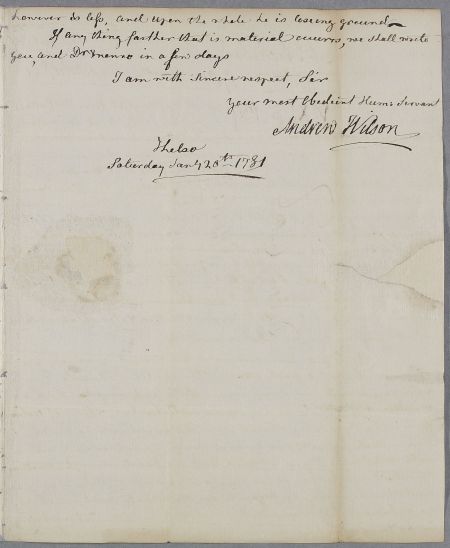 however is less, and upon the whole he is loseing ground
If any thing farther that is material occurrs, we shall write
you, and Dr Monro in a few days
I am with Sincere respect, Sir
Your most Obedient Hum: Servant
Andrew Wilson
Kelso
Saturday Jany 20th 1781